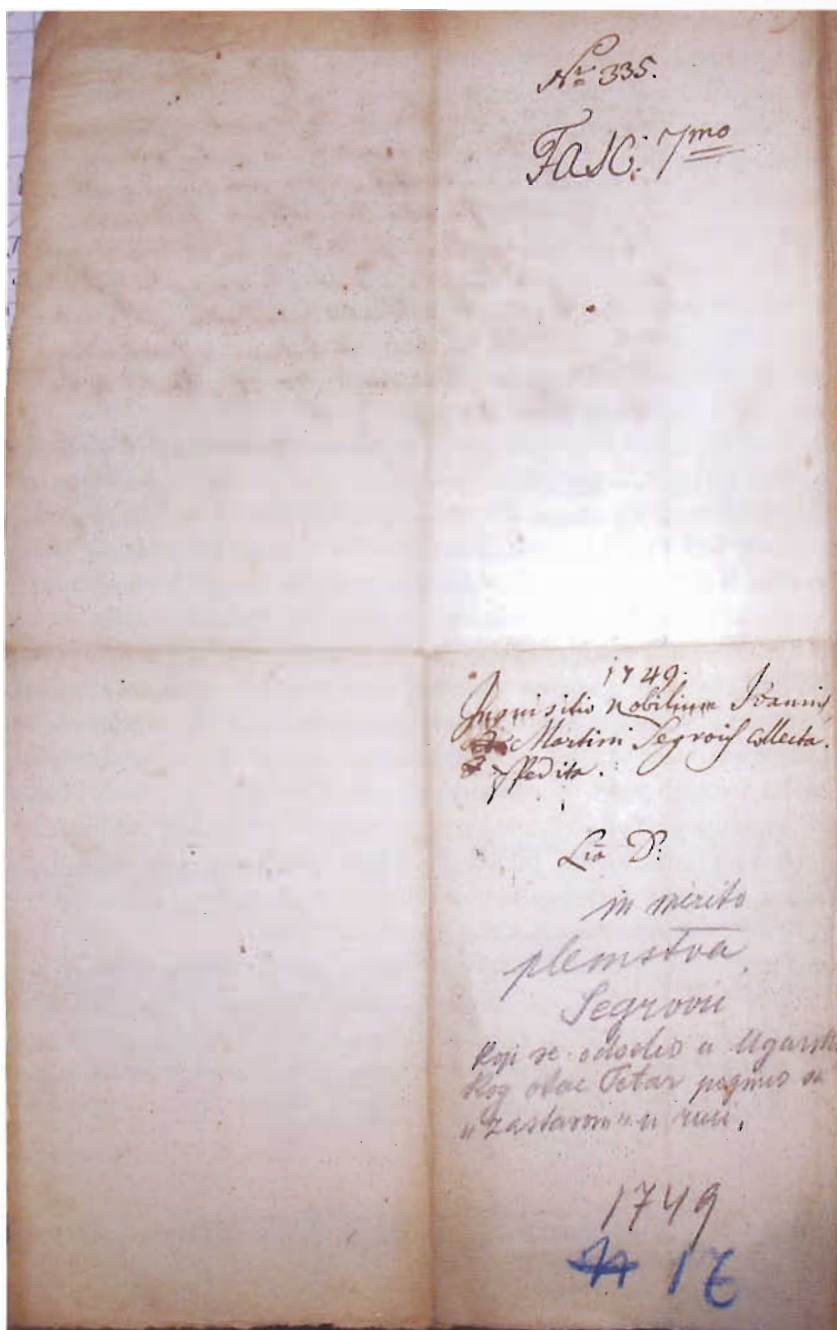 Nr 335.
Fasc: 7mo
1749.
Inquisitio Nobilium Joannis
Martini Segroich collecta.
Lra D:
in merito
plemstva
Segrović
koji se odselio u Ugarsku
kog otac Petar poginuo sa
"zastavom" u ruci.
1749
17